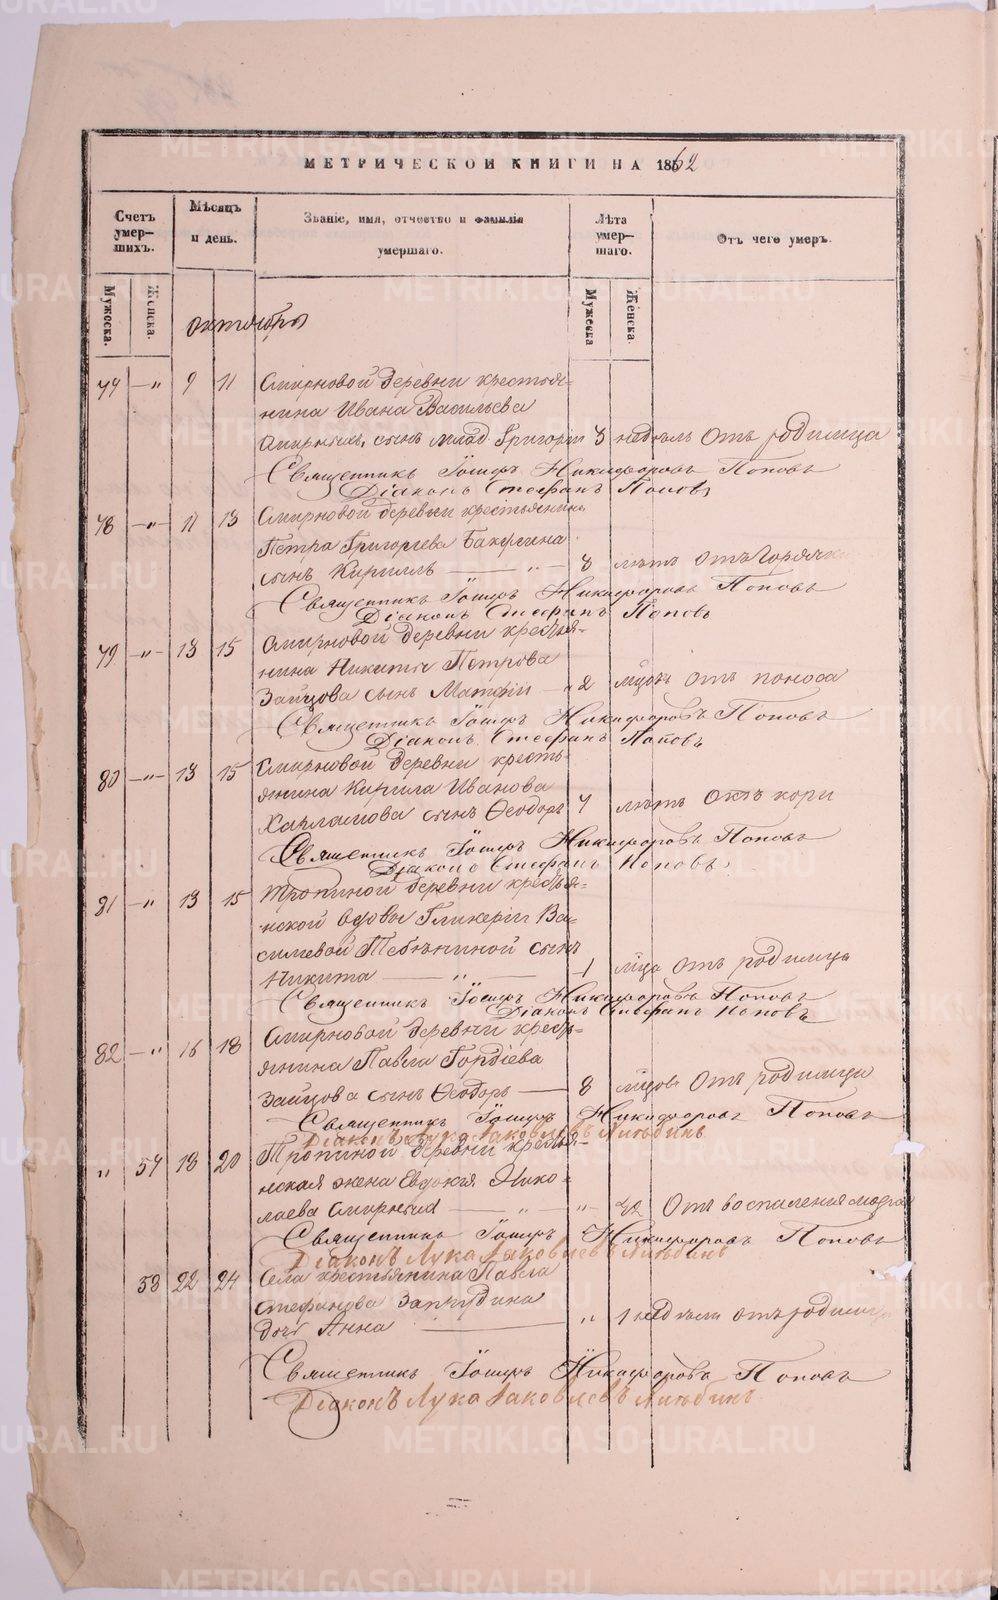 МЕТРИЧЕСКОЙ КНИГИ НА 1862
Счетъ умер-шихъ.
Мѣсяцъ и день.
Званіе, имя, отчество и фамилія умершаго.
Лѣта умер-шаго.
Отъ чего умеръ.
Мужеска. Женска. Мужеска Женска.
октября
77 — „ 9 11 Смирновой деревни крестья-
нина Ивана Васильева
сынъ млад Григорій 3 недѣль Отъ родимца
Священникъ Іосифъ Никифоровъ Поповъ
Діаконъ Стефанъ Поповъ
78 — „ — 11 13 Смирновой деревни крестьянина
Петра Григорьева
сынъ Кириллъ — „ — 8 лѣтъ Отъ Горячк
Священникъ Іосифъ Никифоровъ Поповъ
Діаконъ Стефанъ Поповъ
79 — „ — 13 15 Смирновой деревни кресья-
нина Никиты Петрова
Зайцова сынъ Матфій — „ 2 мѣсяцъ Отъ поноса
Священникъ Іосифъ Никифоровъ Поповъ
Діаконъ Стефанъ Поповъ
80 — „ — 13 15 Смирновой деревни кресть-
янина Кирила Иванова
Харламова сынъ Ѳеодоръ 7 лѣтъ Отъ кори
Священникъ Іосифъ Никифоровъ Поповъ
Діаконъ Стефанъ Поповъ
81 — „ 13 15 Тропиной деревни кресья-
нской вдовы Гликеріи Ва-
силевой сынъ
Никита — „ — 1 мѣца Отъ родимца
Священникъ Іосифъ Никифоровъ Поповъ
Діаконъ Стефанъ Поповъ
82 — „ 16 18 Смирновой деревни кресья-
янина Павла Гордіева
Зайцова сынъ Ѳеодоръ — 8 мѣцовъ Отъ родимца
Священникъ Іосифъ Никифоровъ Поповъ
Діаконъ Лука Іаковлевъ
„ 57 18 20 Тропиной деревни кресья-
нская жена Евдокія Нико-
лаева — „ — „ 42 Отъ воспаления
Священникъ Іосифъ Никифоровъ Поповъ
Діаконъ Лука Іаковлевъ
58 22 24 Села крестьянина Павла
Стефанова
дочь Анна — „ 1 недѣли отъ родимца
Священникъ Іосифъ Никифоровъ Поповъ
Діаконъ Лука Іаковлевъ
METRIKI.GASO-URAL.RU